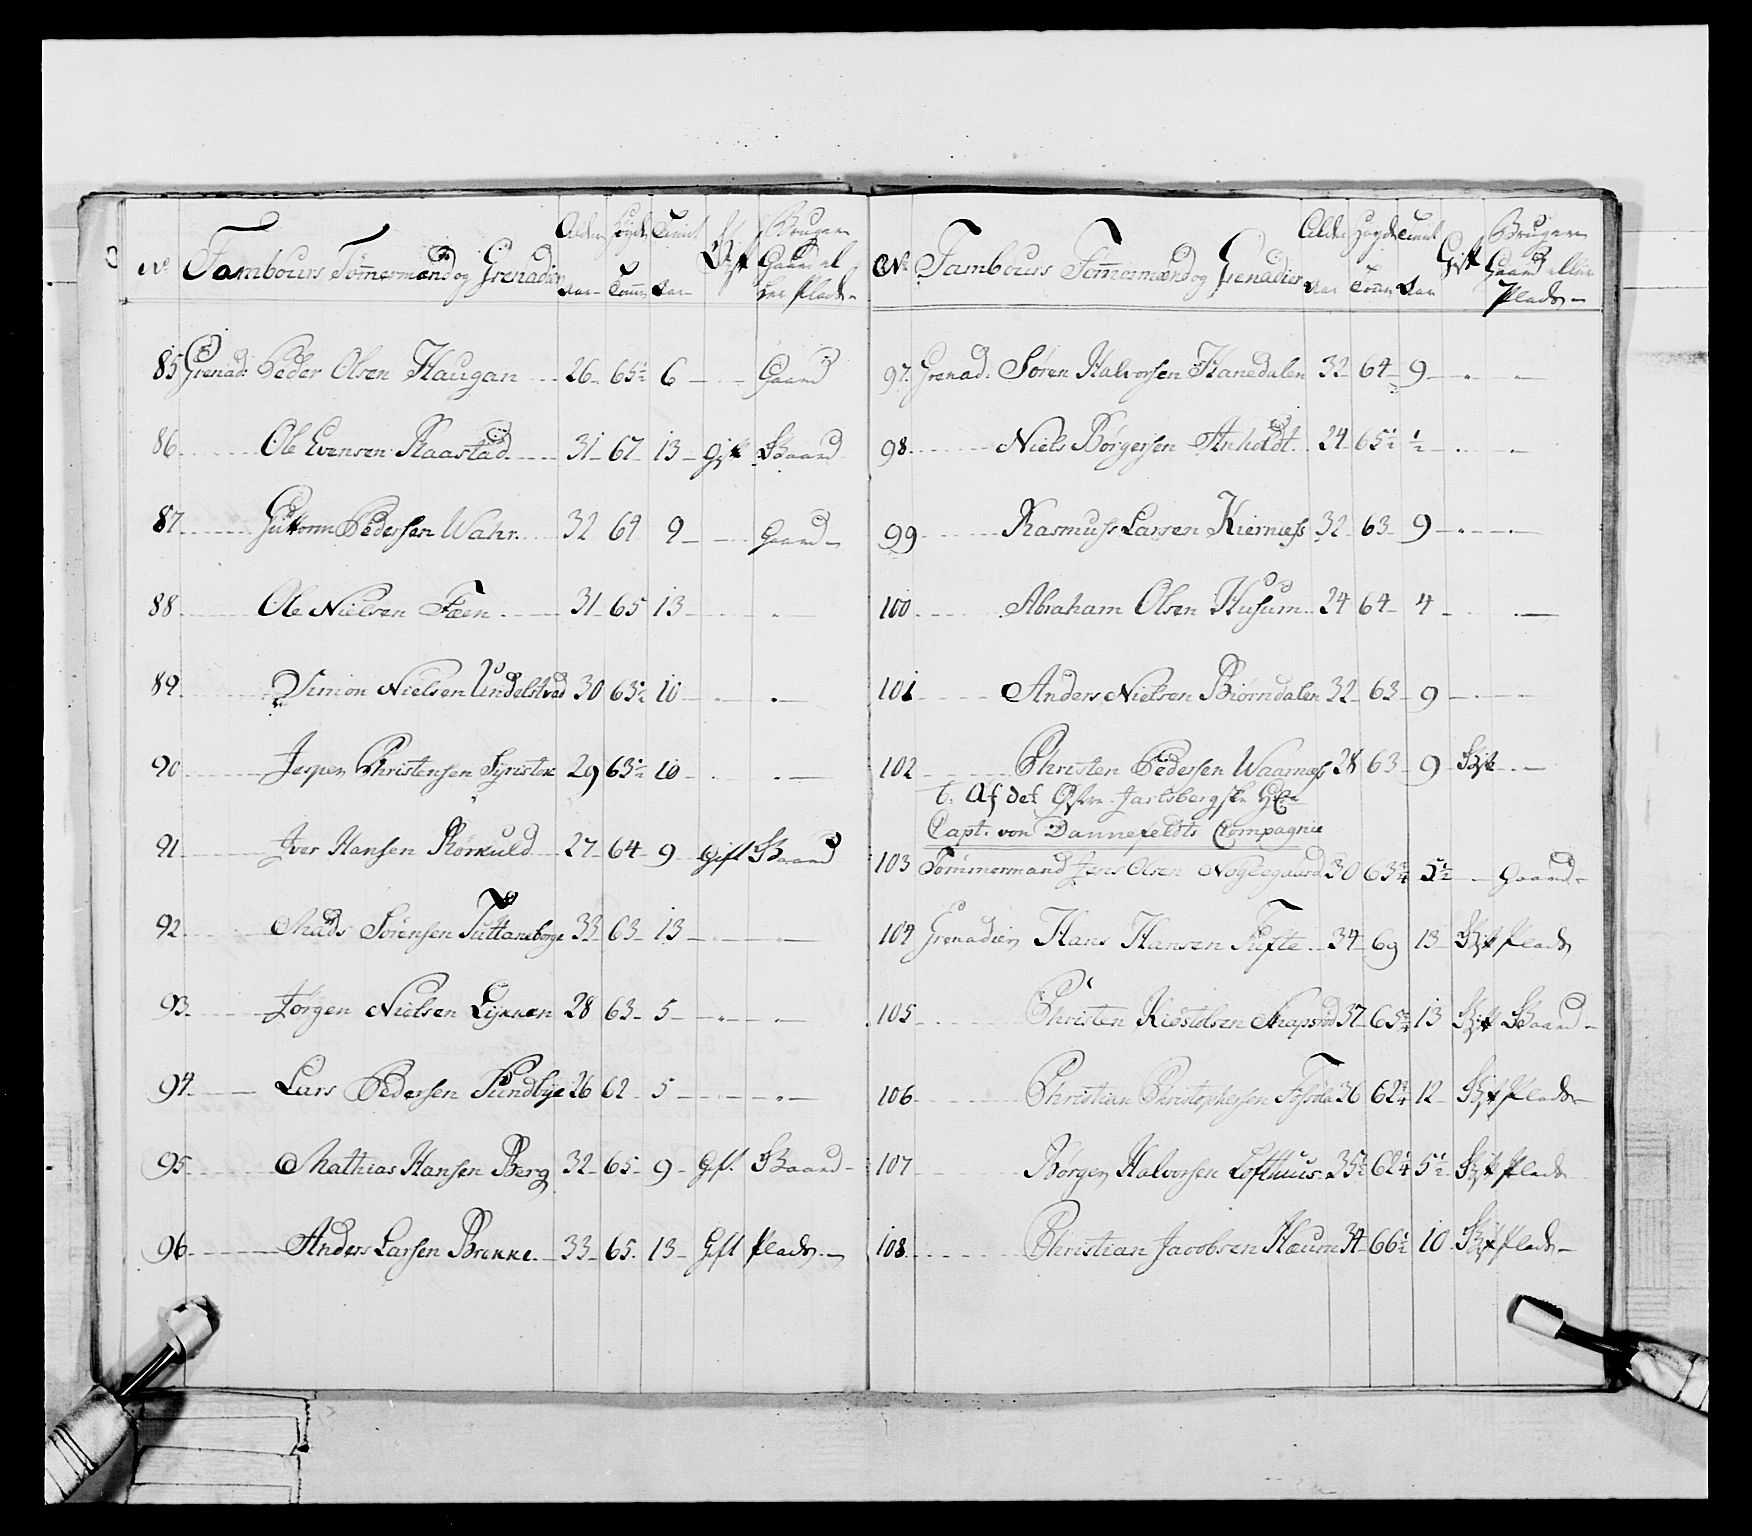 No Tambours Tømmermænd og Grenadier Alder Aar Høyde Tomm Tienst Aar Gift Bruger Gaard el ler Plads
85 Grenad: Peder Olsen Haugan 26 65½ 6 Gaard
86 Ole Evensen Raastad 31 67 13 Gift Gaard
87 Guttorm Pedersen Wahr 32 64 9 Gaard
88 Ole Nielsen Foen 31 65 13
89 Simon Nielsen Undelstvad 30 63½ 10
90 Jesper Christensen 29 63½ 10
91 Iver Hansen Rørkuld 27 64 9 Gift Gaard
92 Mads Sörensen Tuttaneborge 33 63 13
93 Jörgen Nielsen Lykken 28 63 5
94 Lars Pedersen Sundbye 26 62 5
95 Mathias Hansen Berg 32 65 9 Gift Gaard
96 Anders Larsen Brekke 33 65 13 Gift Plads
No Tambours Tømmermænd og Grenadier Alder Aar Høyde Tomm Tienst Aar Gift Bruger Gaard eller Plads
97 Grenad: Sören Halvorsen Hanedalen 32 64 9
98 Niels Börgersen Anholdt 24 65½ ½
99 Rasmuss Larsen Kiernæss 32 63 9
100 Abraham Olsen Husum 24 64 4
101 Anders Nielsen Biörndalen 32 63 9
102 Christen Pedersen Waarnæss 28 63 9 Gift
6. Af det Østre Jarlsbergske
Capt. von Dannefeldts Compagnie
103 Tömmermand Jens Olsen Noglegaard 30 63¾ 5½ Gaard
104 Grenadier Hans Hansen Tufte 34 69 13 Gift Plads
105 Christen Kiøstolsen Snapsröd 37 65¾ 13 Gift Gaard
106 Christian Christophersen 36 62¾ 12 Gift Plads
107 Börger Halvorsen Lofthuus 35½ 62¼ 5½ Gift Plads
108 Christian Jacobsen Haum 34 66½ 10 Gift Plads